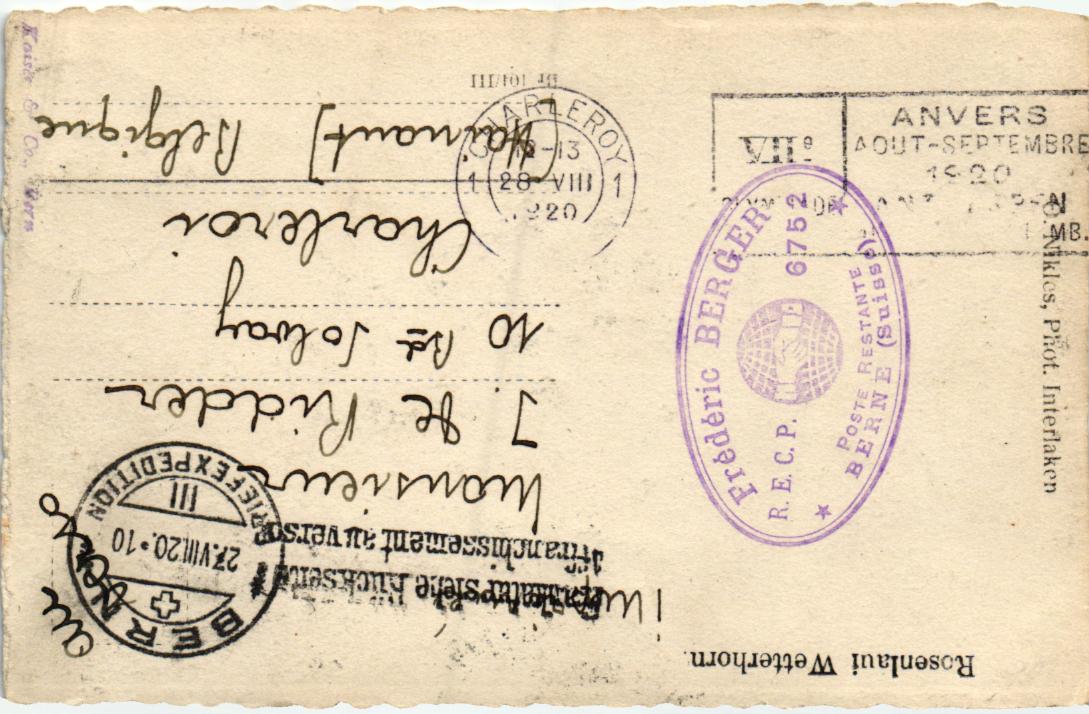 Rosenlaui Wetterhorn.
Frankatur siehe Rückseite
Affranchissement au verso
au verso
Monsieur
J. de Ridder
10 Bd Solvay
Charleroi
[Hainaut] Belgique
BERN
27.VIII.20·10
III
BRIEFEXPEDITION
Br 101/III
CHARLEROY
-13
1 28 VIII 1
1920
VIIe
ANVERS
AOUT-SEPTEMBRE
1920
Frédéric BERGER
R. E. C. P. 6752
POSTE RESTANTE
BERNE (Suisse)
Nikles, Phot. Interlaken
Kaiser & Co., Bern